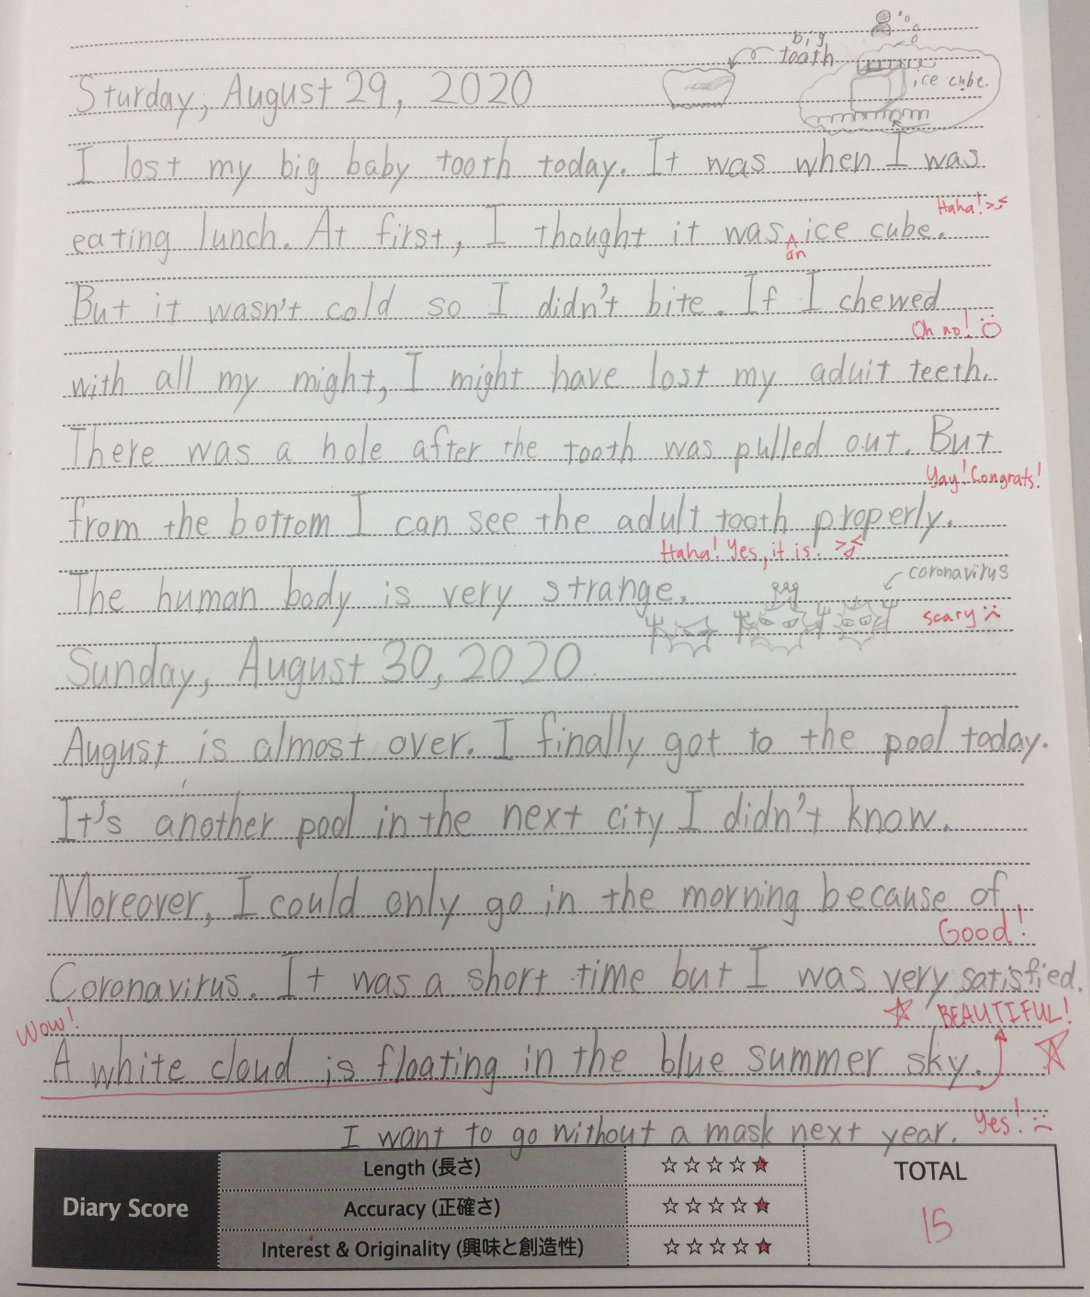 big
tooth
ice cube.
Sturday, August 29, 2020
I lost my big baby tooth today. It was when I was
Haha! ><
eating lunch. At first, I thought it was ice cube.
an
But it wasn't cold so I didn't bite. If I chewed
Oh no!
with all my might, I might have lost my aduit teeth.
There was a hole after the tooth was pulled out. But
Yay! Congrats!
from the bottom I can see the adult tooth properly.
Haha! Yes, it is! ><
coronavirus
The human body is very strange.
scary
Sunday, August 30, 2020
August is almost over. I finally got to the pool today.
It's another pool in the next city I didn't know.
Moreover, I could only go in the morning because of
Good!
Coronavirus. It was a short time but I was very satisfied.
Wow!
☆ BEAUTIFUL!
A white cloud is floating in the blue summer sky. ☆
I want to go without a mask next year. Yes!
Diary Score
Length (長さ) ☆☆☆☆★
Accuracy (正確さ) ☆☆☆☆★
Interest & Originality (興味と創造性) ☆☆☆☆★
TOTAL
15